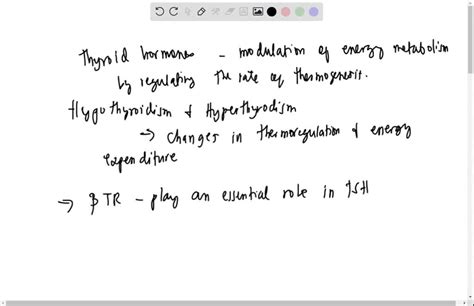 Thyroid hormones - modulation of energy metabolism
by regulating the rate of thermogenesis.
Hypothyroidism & Hyperthyrodism
→ changes in thermoregulation & energy
expenditure
→ βTR - play an essential role in TSH